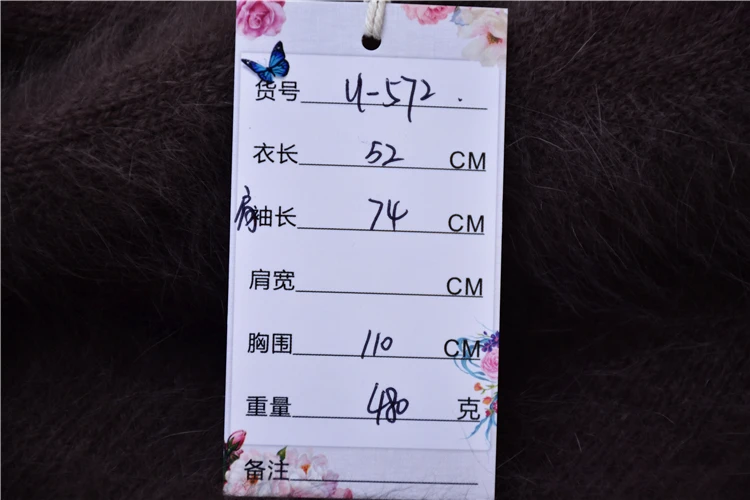 货号 U-572.
衣长 52 CM
肩袖长 74 CM
肩宽 CM
胸围 110 CM
重量 480 克
备注